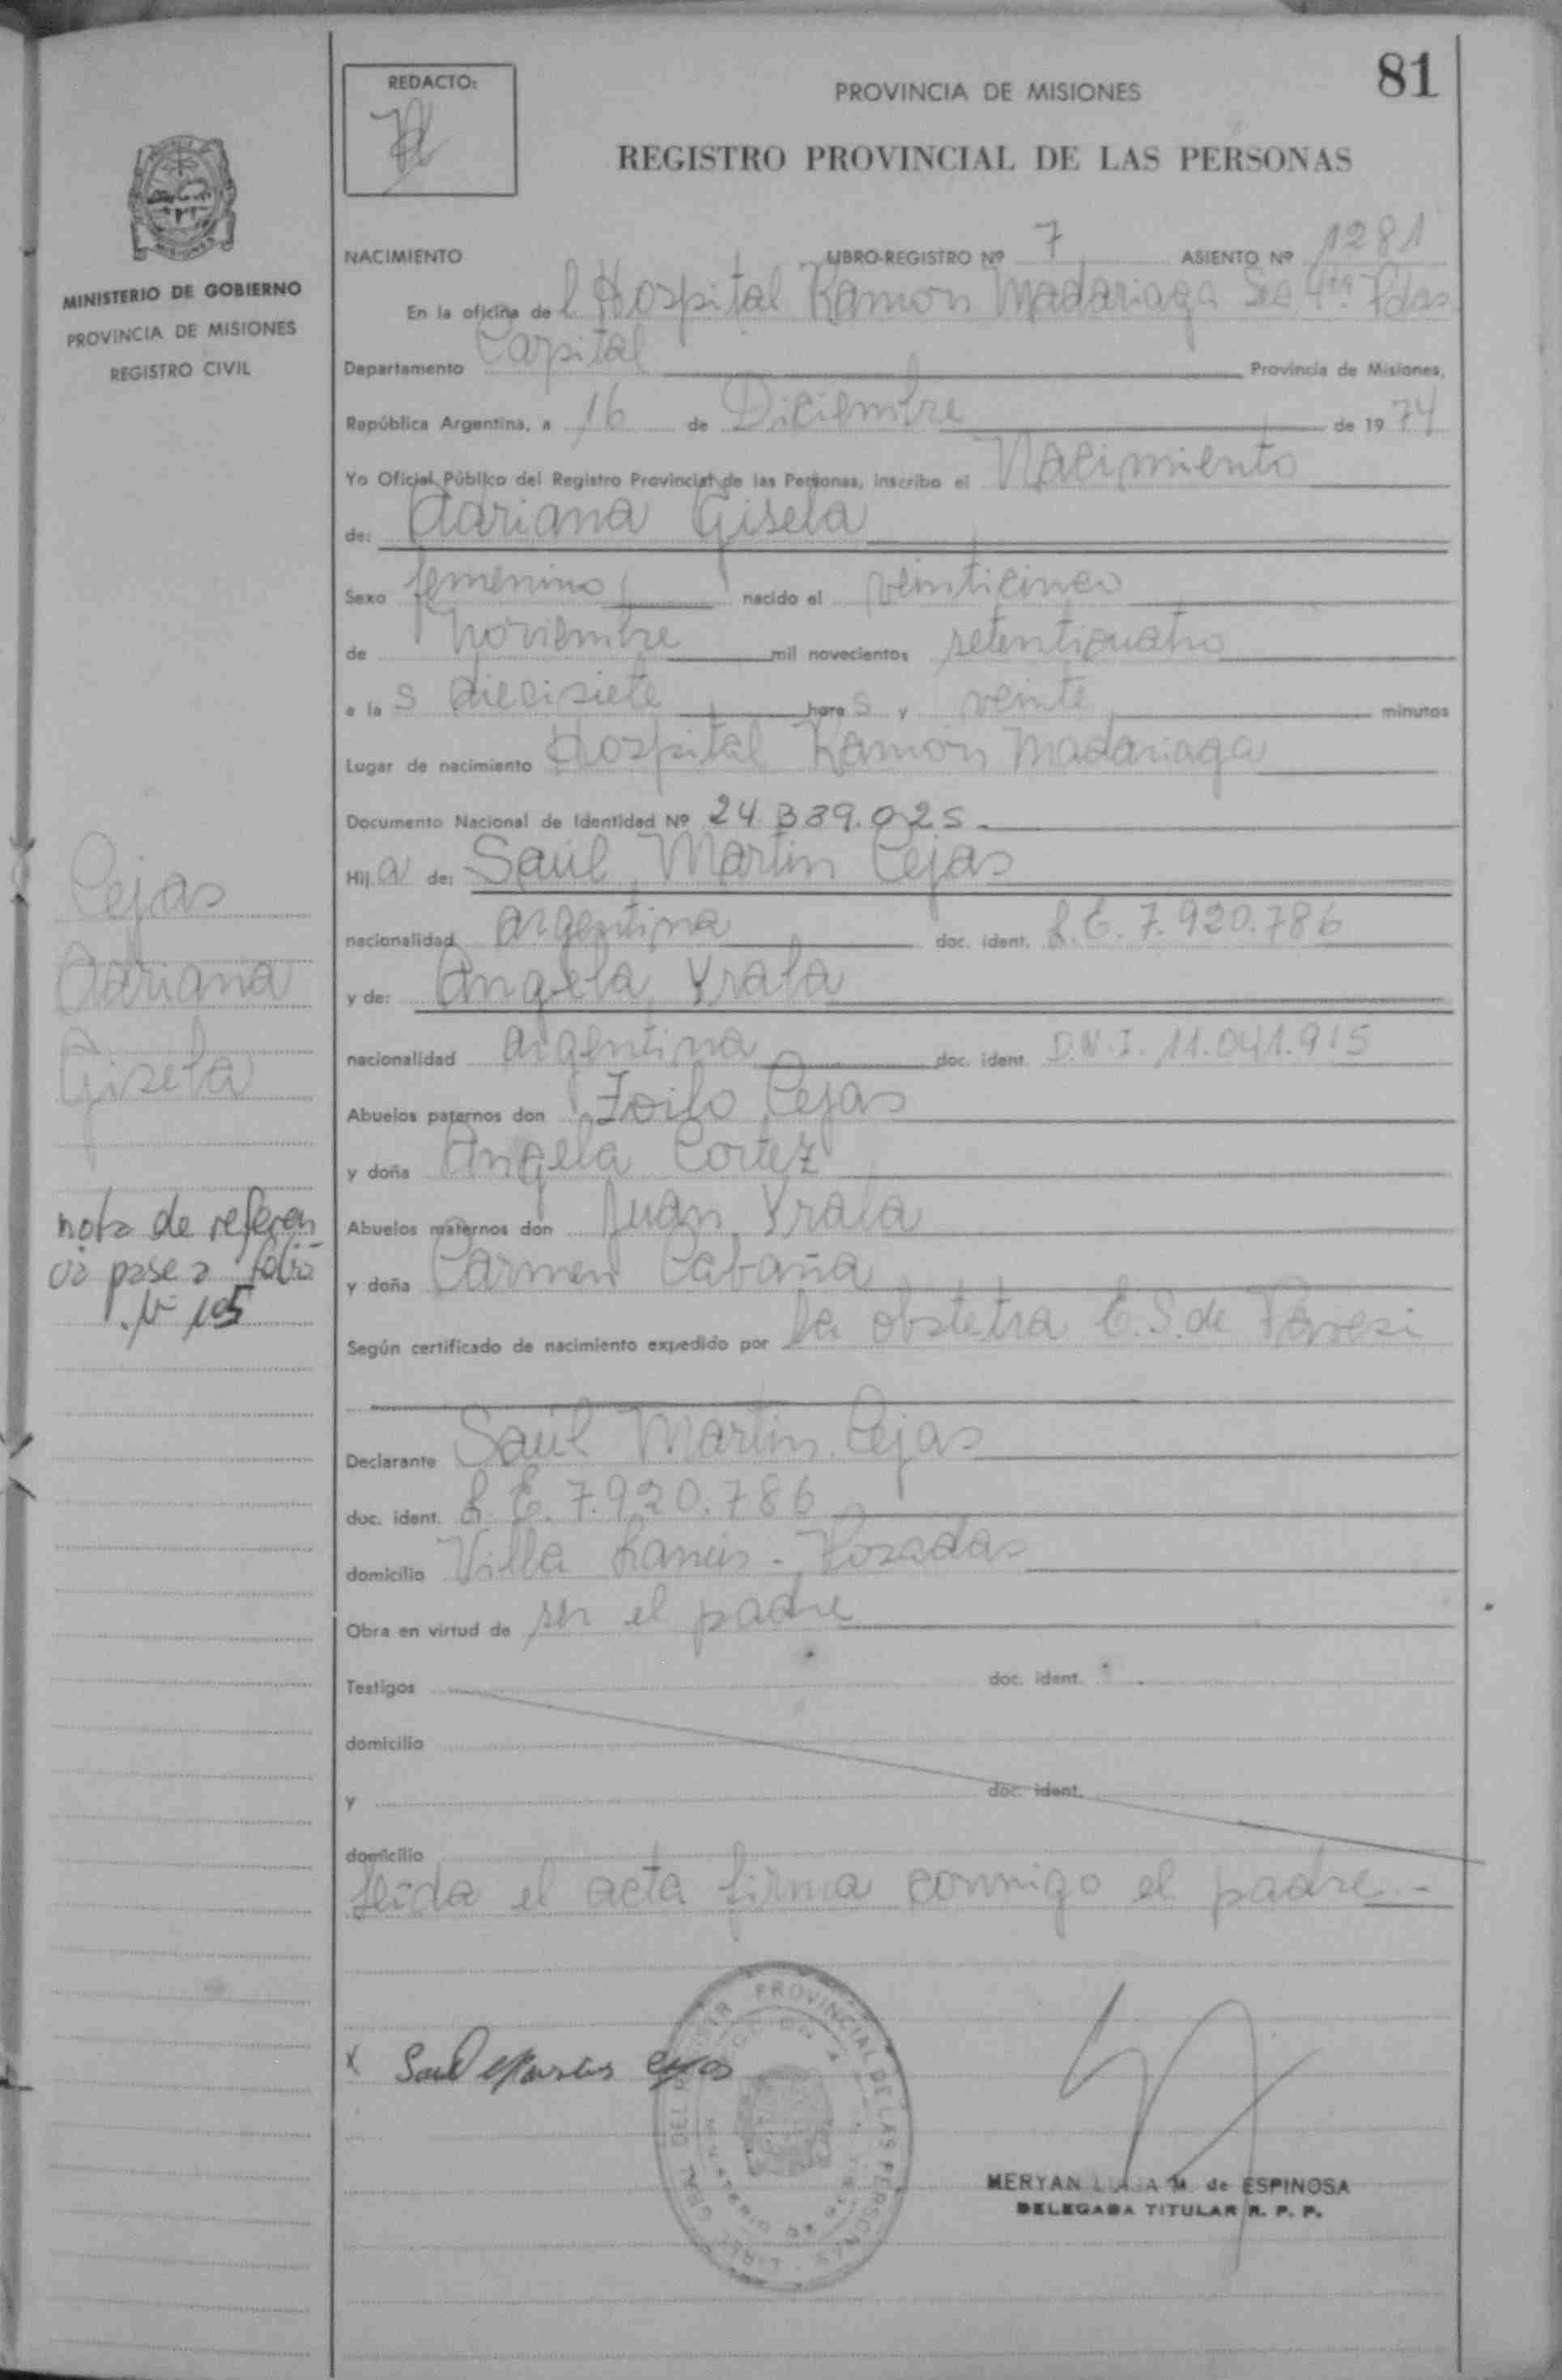 81
REDACTO:
PROVINCIA DE MISIONES
REGISTRO PROVINCIAL DE LAS PERSONAS
MINISTERIO DE GOBIERNO
PROVINCIA DE MISIONES
REGISTRO CIVIL
NACIMIENTO LIBRO-REGISTRO Nº 7 ASIENTO Nº 1281
En la oficina de l Hospital Ramón Madariaga Sec 4ta Pdas
Departamento Capital Provincia de Misiones,
República Argentina, a 16 de Diciembre de 1974
Yo Oficial Público del Registro Provincial de las Personas, inscribo el Nacimiento
de: Adriana Gisela
Sexo femenino nacido el veinticinco
de noviembre mil novecientos setenticuatro
a la s diecisiete hora s y veinte minutos
Lugar de nacimiento Hospital Ramón Madariaga
Documento Nacional de Identidad Nº 24.339.025.
Hij a de: Saúl Martin Cejas
nacionalidad argentina doc. ident. L.E. 7.920.786
y de: Angela Yrala
nacionalidad argentina doc. ident. D.N.I. 11.041.915
Abuelos paternos don Zoilo Cejas
y doña Angela Cortez
Abuelos maternos don Juan Yrala
y doña Carmen Cabaña
Según certificado de nacimiento expedido por la obstetra E.S. de Pavesi
Declarante Saúl Martin Cejas
doc. ident. L.E. 7.920.786
domicilio Villa Lanús - Posadas
Obra en virtud de ser el padre
Testigos doc. ident.
domicilio
y doc. ident.
domicilio
Leída el acta firma conmigo el padre.-
Cejas
Adriana
Gisela
nota de referen
cia pase a folio
Nº 105
x Saul Martin Cejas
PROVINCIAL DE LAS PERSONAS
MERYAN M. de ESPINOSA
DELEGADA TITULAR R. P. P.